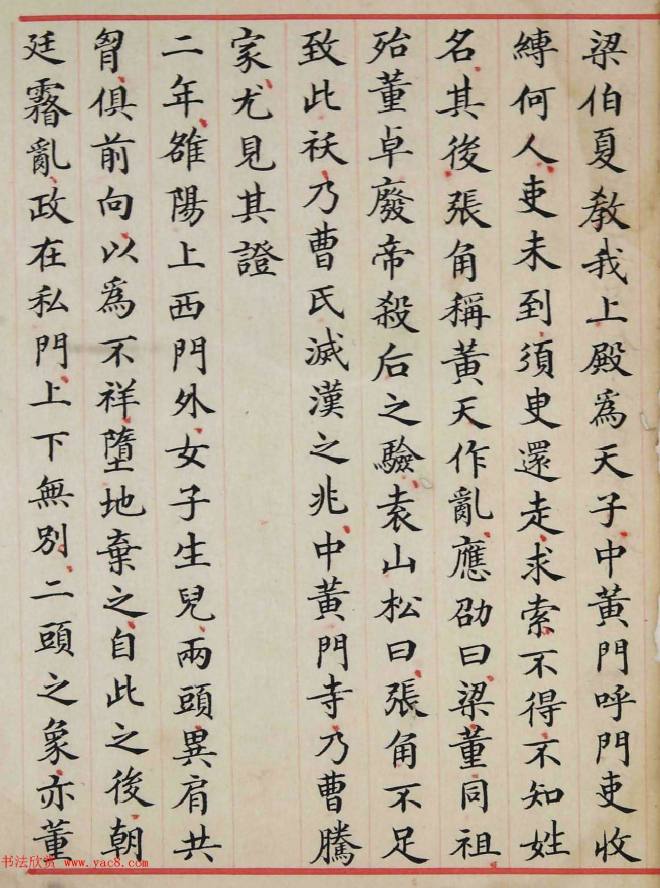 梁伯夏教我上殿為天子中黃門呼門吏收
縛何人吏未到須臾還走求索不得不知姓
名其後張角稱黃天作亂應劭曰梁董同祖
殆董卓廢帝殺后之驗袁山松曰張角不足
致此祅乃曹氏滅漢之兆中黃門寺乃曹騰
家尤見其證
二年雒陽上西門外女子生兒兩頭異肩共
胷俱前向以為不祥墮地棄之自此之後朝
廷霿亂政在私門上下無別二頭之象亦董
书法欣赏 www.yac8.com